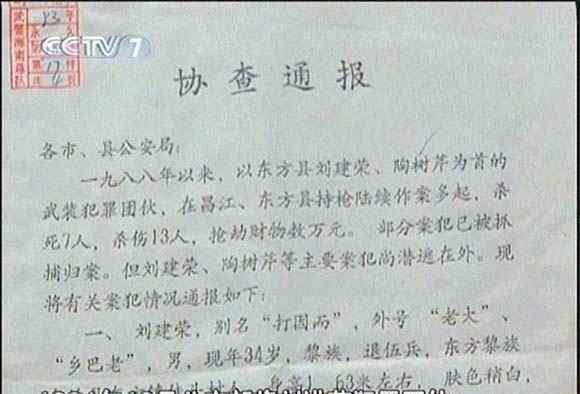 CCTV 7
协查通报
各市、县公安局:
一九八八年以来，以东方县刘建荣、陶树芹为首的
武装犯罪团伙，在昌江、东方县持枪陆续作案多起，杀
死7人，杀伤13人，抢劫财物数万元。部分案犯已被抓
捕归案。但刘建荣、陶树芹等主要案犯尚潜逃在外。现
将有关案犯情况通报如下:
一、刘建荣，别名“打因而”，外号“老大”、
“乡巴老”，男，现年34岁，黎族，退伍兵，东方黎族
身高1.63米左右，肤色稍白，